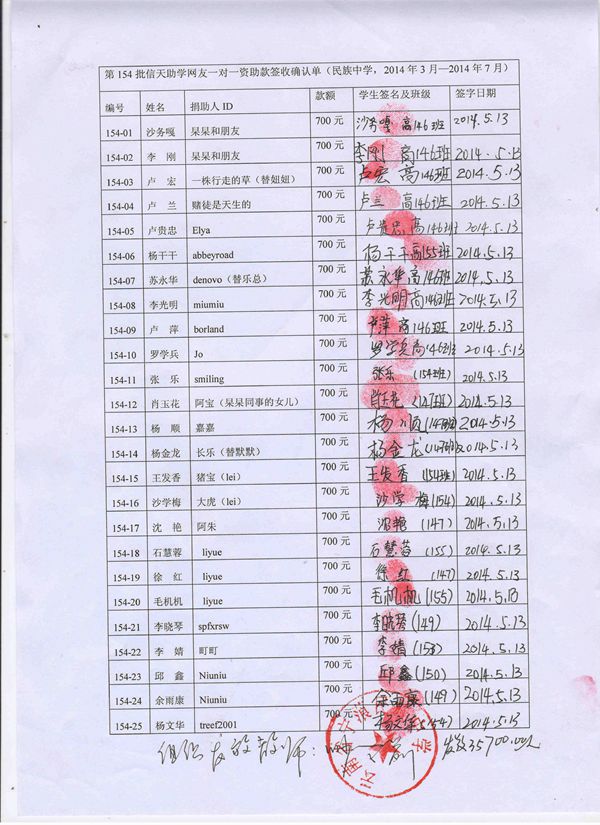 第 154 批信天助学网友一对一资助款签收确认单（民族中学，2014 年 3 月—2014 年 7 月）
编号 姓名 捐助人 ID 款额 学生签名及班级 签字日期
154-01 沙务嘎 呆呆和朋友 700 元 沙务嘎 高146班 2014.5.13
154-02 李 刚 呆呆和朋友 700 元 李刚 高146班 2014.5.13
154-03 卢 宏 一株行走的草（替妞妞） 700 元 卢宏 高146班 2014.5.13
154-04 卢 兰 赌徒是天生的 700 元 卢兰 高146班 2014.5.13
154-05 卢贵忠 Elya 700 元 卢贵忠 高146班 2014.5.13
154-06 杨干干 abbeyroad 700 元 杨干干 高155班 2014.5.13
154-07 苏永华 denovo（替乐总） 700 元 苏永华 高146班 2014.5.13
154-08 李光明 miumiu 700 元 李光明 高146班 2014.5.13
154-09 卢 萍 borland 700 元 卢萍 高146班 2014.5.13
154-10 罗学兵 Jo 700 元 罗学兵 高146班 2014.5.13
154-11 张 乐 smiling 700 元 张乐 (154班) 2014.5.13
154-12 肖玉花 阿宝（呆呆同事的女儿） 700 元 肖玉花 (147班) 2014.5.13
154-13 杨 顺 嘉嘉 700 元 杨顺 (147班) 2014.5.13
154-14 杨金龙 长乐（替默默） 700 元 杨金龙 (147班) 2014.5.13
154-15 王发香 猪宝（lei） 700 元 王发香 (154班) 2014.5.13
154-16 沙学梅 大虎（lei） 700 元 沙学梅 (154) 2014.5.13
154-17 沈 艳 阿朱 700 元 沈艳 (147) 2014.5.13
154-18 石慧蓉 liyue 700 元 石慧蓉 (155) 2014.5.13
154-19 徐 红 liyue 700 元 徐红 (147) 2014.5.13
154-20 毛机机 liyue 700 元 毛机机 (155) 2014.5.13
154-21 李晓琴 spfxrsw 700 元 李晓琴 (149) 2014.5.13
154-22 李 婧 町町 700 元 李婧 (153) 2014.5.13
154-23 邱 鑫 Niuniu 700 元 邱鑫 (150) 2014.5.13
154-24 余雨康 Niuniu 700 元 余雨康 (149) 2014.5.13
154-25 杨文华 treef2001 700 元 杨文华 (154) 2014.5.13
组织发放教师：